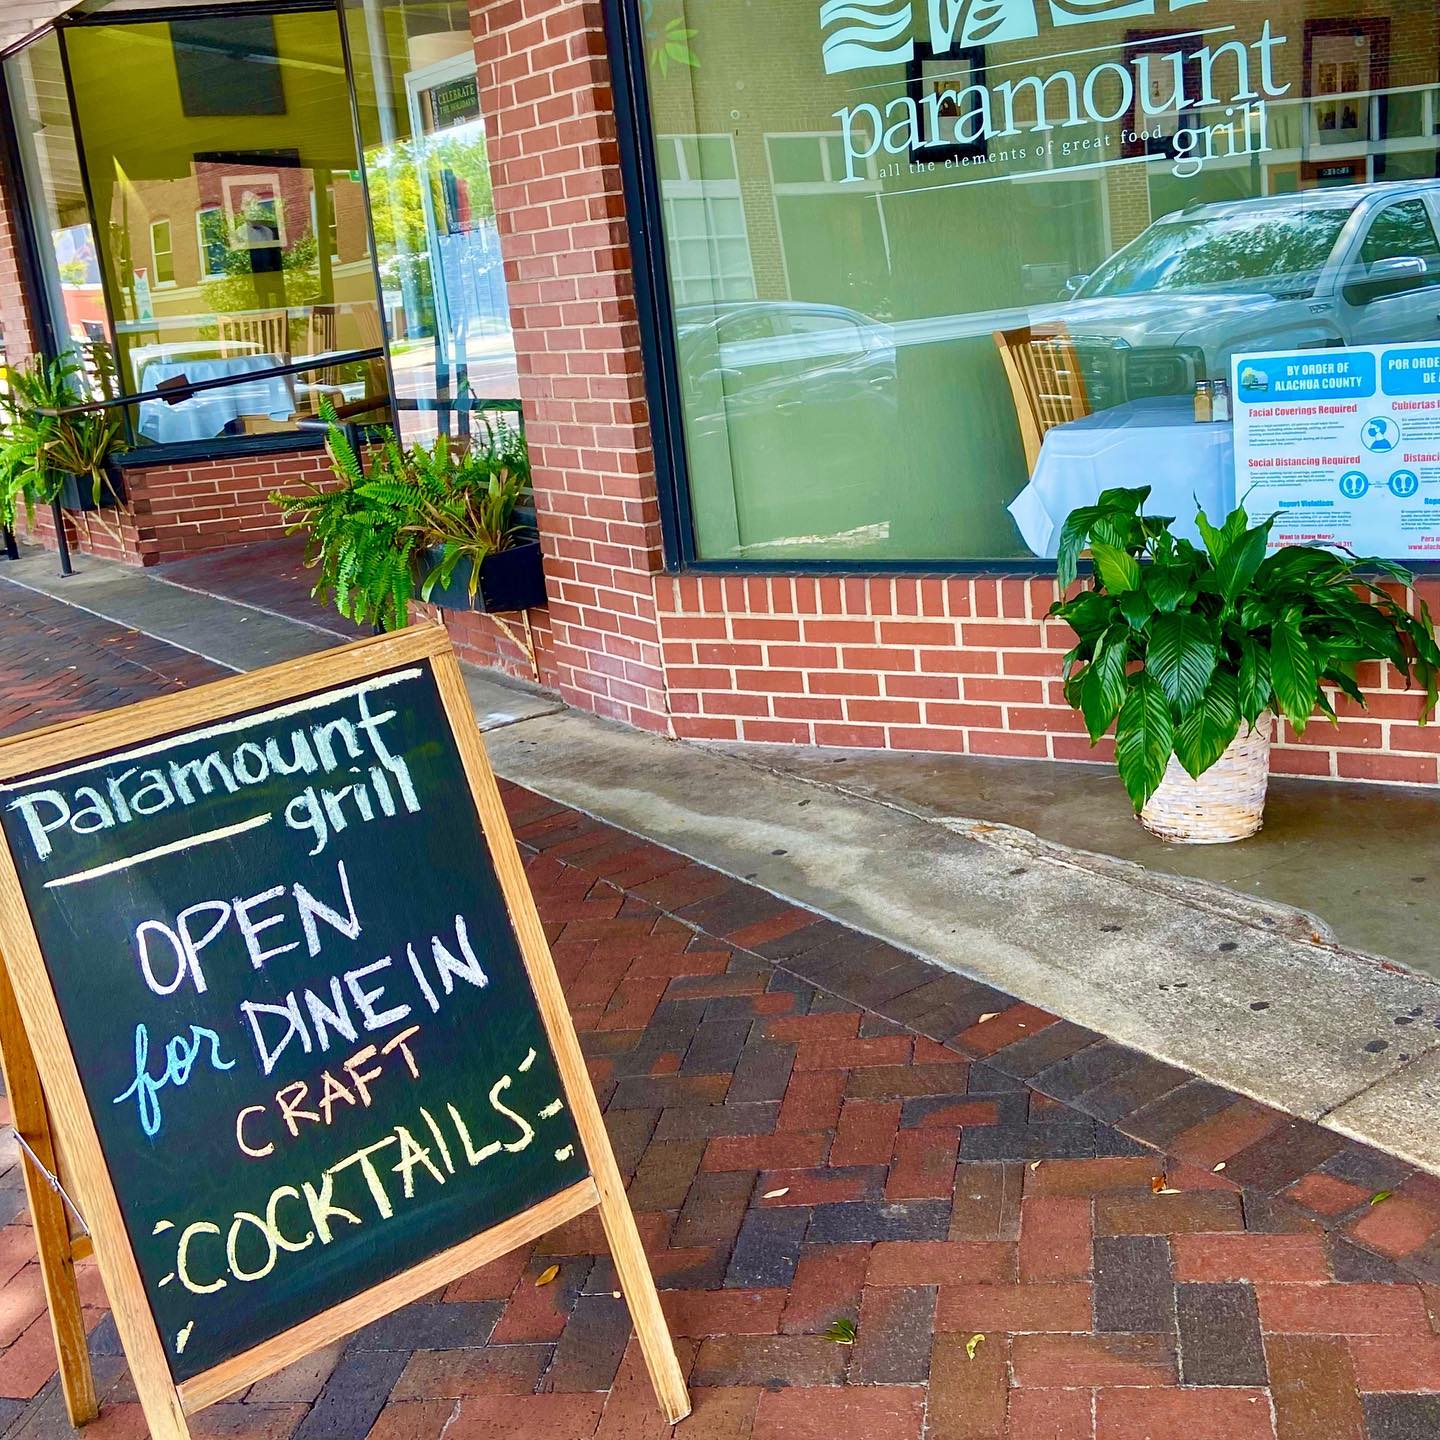 CELEBRATE
THE HOLIDAYS!
paramount
grill
all the elements of great food
BY ORDER OF
ALACHUA COUNTY
Facial Coverings Required
Social Distancing Required
Report Violations
Want to Know More?
POR ORDE
DE A
Cubiertas
Distanci
Repo
Para
www.alach
paramount
grill
OPEN
for DINE IN
CRAFT
COCKTAILS